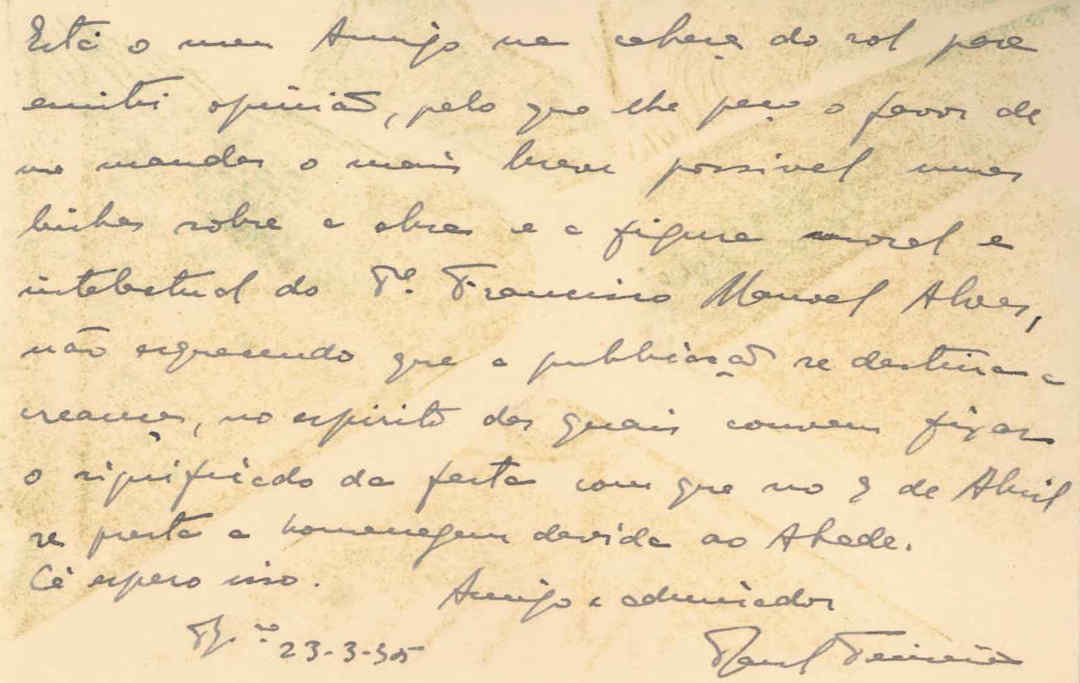 Está o meu Amigo na cabeça do rol para
emitir opinião, pelo que lhe peço o favor de
me mandar o mais breve possivel umas
linhas sobre a obra e a figura moral e
intelectual do Pe. Francisco Manuel Alves,
não esquecendo que a publicação se destina a
creanças, no espirito das quais convem fixar
o significado da festa com que no 9 de Abril
se presta a homenagem devida ao Abade.
Cá espero isso.
Amigo e admirador
23-3-35
Raul Teixeira